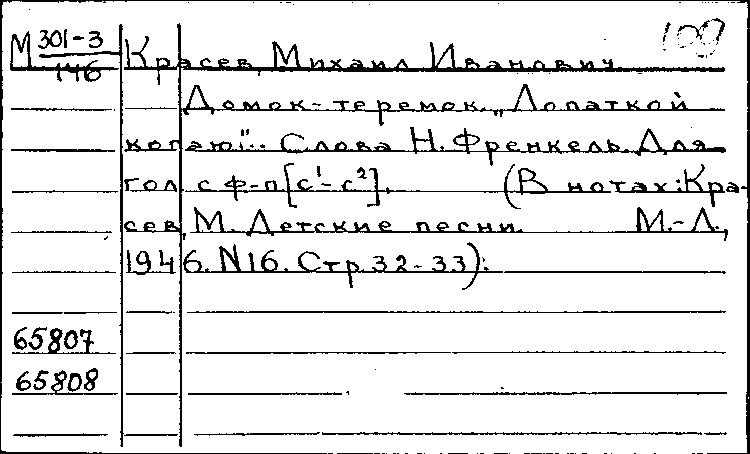 М 301-3 Красев, Михаил Иванович. 109
146
Домок-теремок. „Лопаткой
копаю".. Слова Н. Френкель. Для
гол. с ф-п [c¹-c²]. (В нотах: Кра-
сев, М. Детские песни. М.-Л.,
1946. N16. Стр. 32-33):
65807
65808